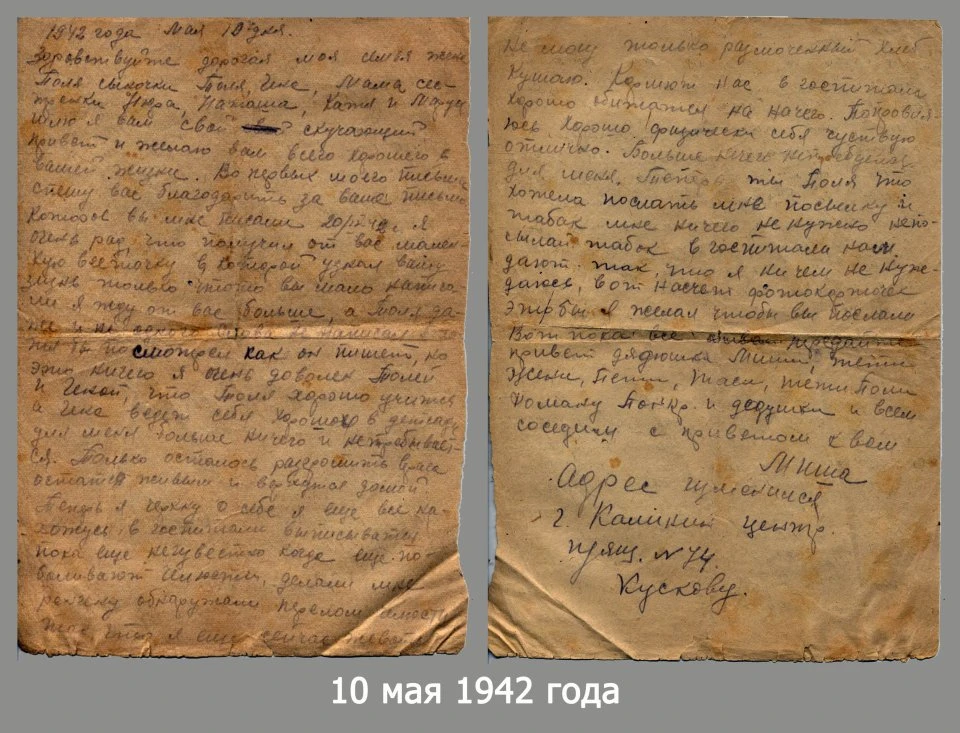 1942 года мая 10 дня.
Здравствуйте дорогая моя семья жена
Поля сыночки Толя, Гена, Мама сес-
тренки Нюра, Наташа, Катя и Маруся
шлю я вам свой скучающий
привет и желаю вам всего хорошего в
вашей жизни. Во первых моего письма
спешу вас благодарить за ваше письмо
которое вы мне писали я
очень рад, что получил от вас мален-
кую весточку в которой узнал вашу
жизнь только что-то вы мало написа
ли я жду от вас больше, а Толя да-
же и не одного слова не написал
посмотрел как он пишет, но
это ничего я очень доволен Толей
и Геной, что Толя хорошо учится
а Гена ведет себя хорошо в детсаде
для меня больше ничего и не требывает-
ся. Только осталось разгромить врага
остатся живым и вернутся домой
Теперь я черкну о себе я еще все на-
хожусь в госпитали выписыватся
пока еще неизвестно когда еще по-
делали мне
обнаружали перелом
так что я еще сейчас
не могу только размоченный хлеб
кушаю. Кормют нас в госпитали
хорошо обижатся на начего. Поправля-
юсь хорошо физически себя чуствую
отлично. Больше ничего
для меня. Теперь ты Поля что
хотела послать мне посылку и
табак мне ничего не нужно непо-
сылай табак в госпитали нам
дают так, что я ни чем не нуж-
даюсь, вот насчет фотокарточек
это бы я желал чтобы вы послали
Вот пока все передайте
привет дядюшка Миши, тети
Жени, Пети, Таси, тети Поли
Роману и дедушки и всем
соседям с приветом к вам
Миша
Адрес изменился
г. Калинин центр.
п/ящ. N 74.
Кускову.
10 мая 1942 года